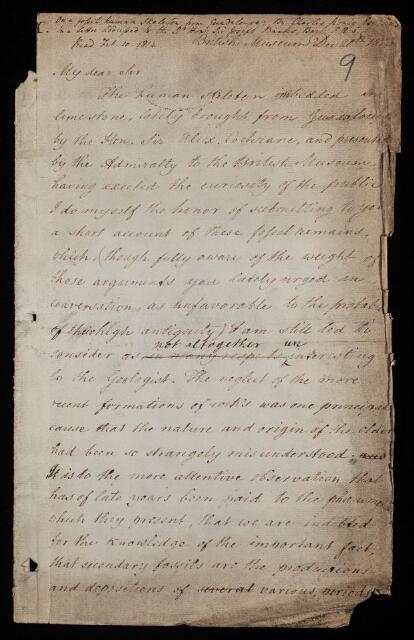 On a fossil human Skeleton from Guadaloupe. By Charles Konig Esq.
In a letter addressed to the Rt Hon. Sir Joseph Banks Bart. P.R.S.
Read Feb. 10. 1814.
British Museum Dec 20th
9
My dear Sir
The human skeleton imbedded in
limestone, lately brought from Guadaloupe
by the Hon. Sir Alex. Cochrane, and presented
by the Admiralty to the British Museum,
having excited the curiosity of the public
I do myself the honor of submitting to you
a short account of these fossil remains,
which, (though fully aware of the weight of
those arguments you lately urged in
conversation, as unfavorable to the probab
of high antiquity) I am still led to
not altogether un
consider as in many respects interesting
to the Geologist. The neglect of the more
recent formations of rocks was one principal
cause that the nature and origin of the older
had been so strangely misunderstood.
It is to the more attentive observation that
has of late years been paid to the phenomena
which they present, that we are indebted
for the knowledge of the important fact,
that secondary fossils are the productions
and depositions of several various, periods